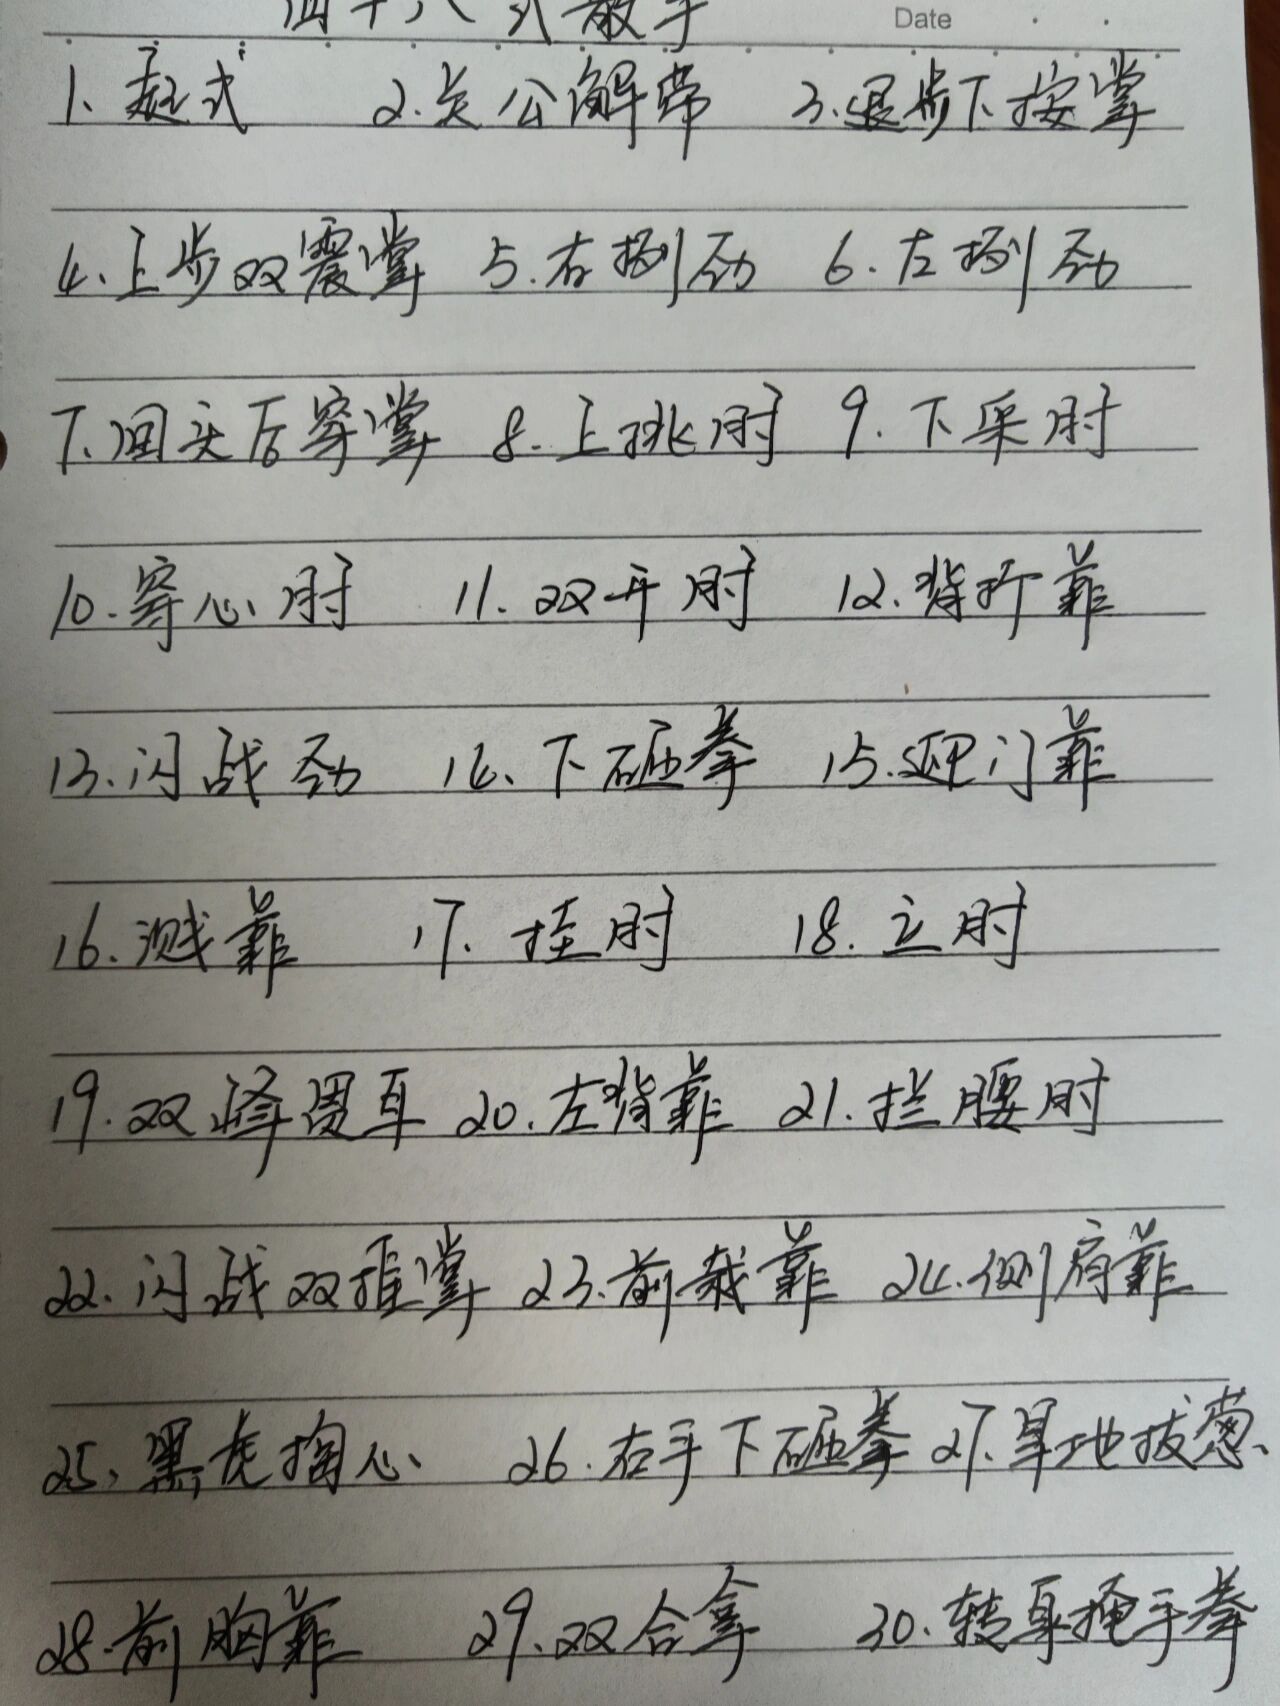 四十八式散手 Date
1、起式 2.关公解带 3.退步下按掌
4.上步双震掌 5.右捌劲 6.左捌劲
7.回头后穿掌 8.上挑肘 9.下采肘
10.穿心肘 11.双开肘 12.背折靠
13.闪战劲 14、下砸拳 15.迎门靠
16.溅靠 17.挂肘 18.立肘
19.双峰贯耳 20.左背靠 21.拦腰肘
22.闪战双推掌 23.前栽靠 24.侧肩靠
25、黑虎掏心 26.右手下砸拳 27.旱地拔葱
28.前胸靠 29.双合拿 30.转身掩手拳